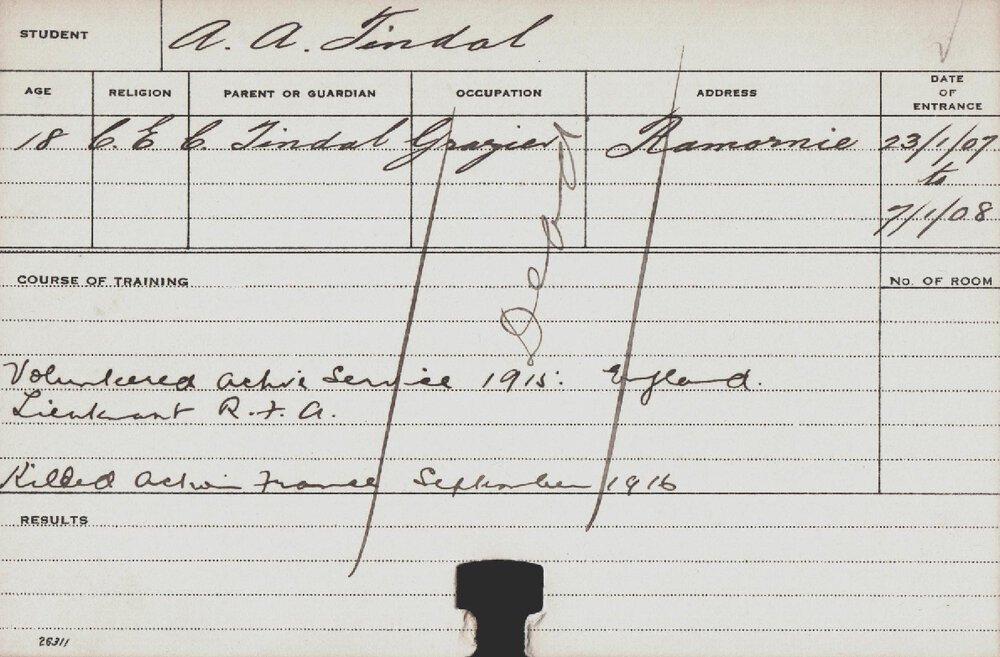 STUDENT A. A. Tindal
AGE RELIGION PARENT OR GUARDIAN OCCUPATION ADDRESS DATE OF ENTRANCE
18 C. E C. Tindal Grazier Ramornie 23/1/07
to
7/1/08
Debry
COURSE OF TRAINING No. OF ROOM
Volunteered active Service 1915: England.
Lieutenant R. F. A.
Killed Action France September 1916
RESULTS
26311